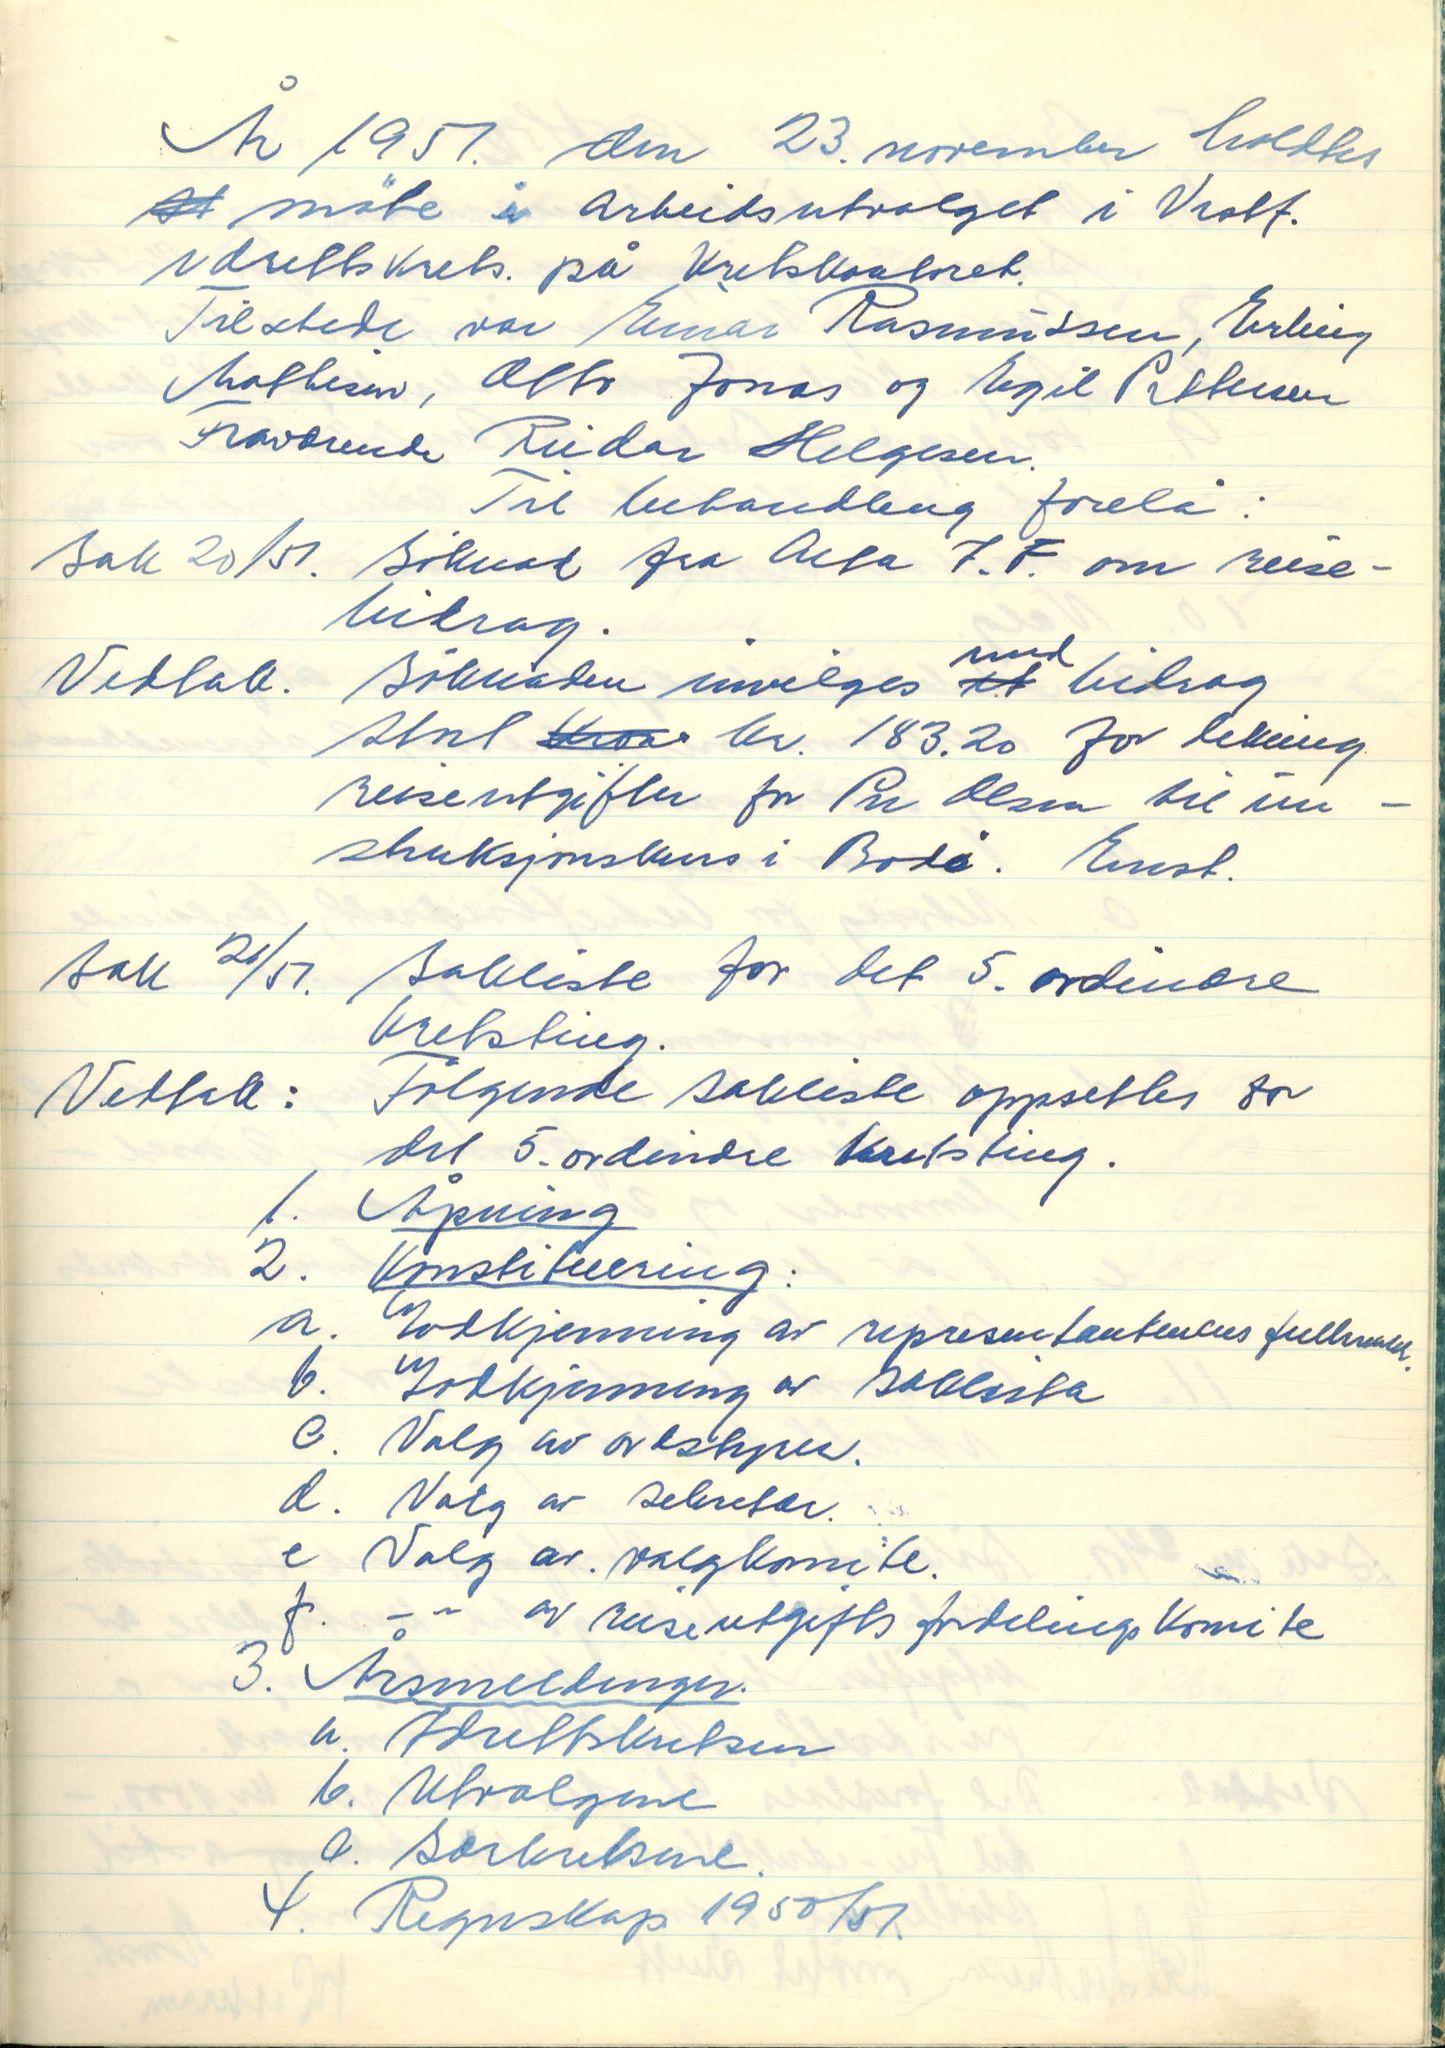 År 1951. den 23. november holdtes
møte i Arbeidsutvalget i Vestf.
idrettskrets. på Kretskontoret.
Tilstede var Einar Rasmussen, Erling
Mathisen, Otto Jonas og Egil Pettersen
Fraværende Reidar Helgesen.
Til behandling forelå:
Sak 20/51. Søknad fra Alta I.F. om reise-
bidrag.
Vedtak. Søknaden innvilges med bidrag
stort kr. 183.20 for dekning
reiseutgifter for Per Olsen til in-
struksjonskurs i Bodø. Enst.
Sak 21/51. Sakliste for det 5. ordinære
Kretsting.
Vedtak: Følgende sakliste oppsettes for
det 5. ordinære Kretsting.
1. Åpning
2. Konstituering:
a. Godkjenning av representantenes fullmakt.
b. Godkjenning av saklista
c. Valg av ordstyrer.
d. Valg av sekretær.
e Valg av. valgkomite.
f. -"- av reiseutgifts fordelings komite
3. Årsmeldinger.
a. Idrettskretsen
b. Utvalgene
c. Særkretsene.
4. Regnskap 1950/51.